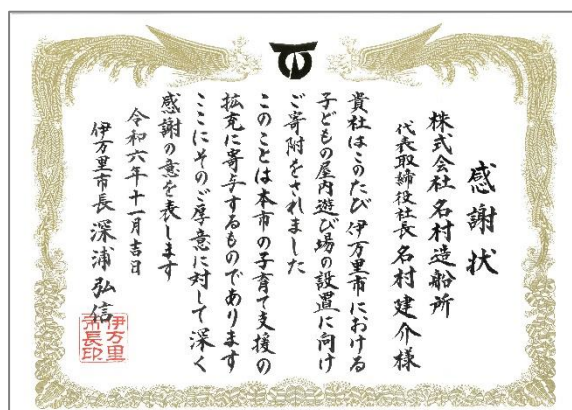 感謝状
株式会社 名村造船所
代表取締役社長 名村建介様
貴社はこのたび伊万里市における
子どもの屋内遊び場の設置に向け
ご寄附をされました
このことは本市の子育て支援の
拡充に寄与するものであります
ここにそのご厚意に対して深く
感謝の意を表します
令和六年十一月吉日
伊万里市長 深浦弘信
伊万里
市長印